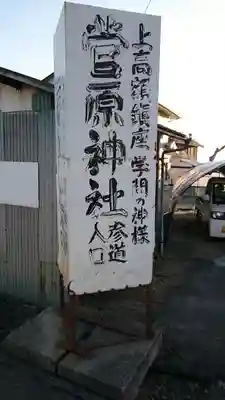 上高野鎮座 学問の神様
菅原神社
参道
入口